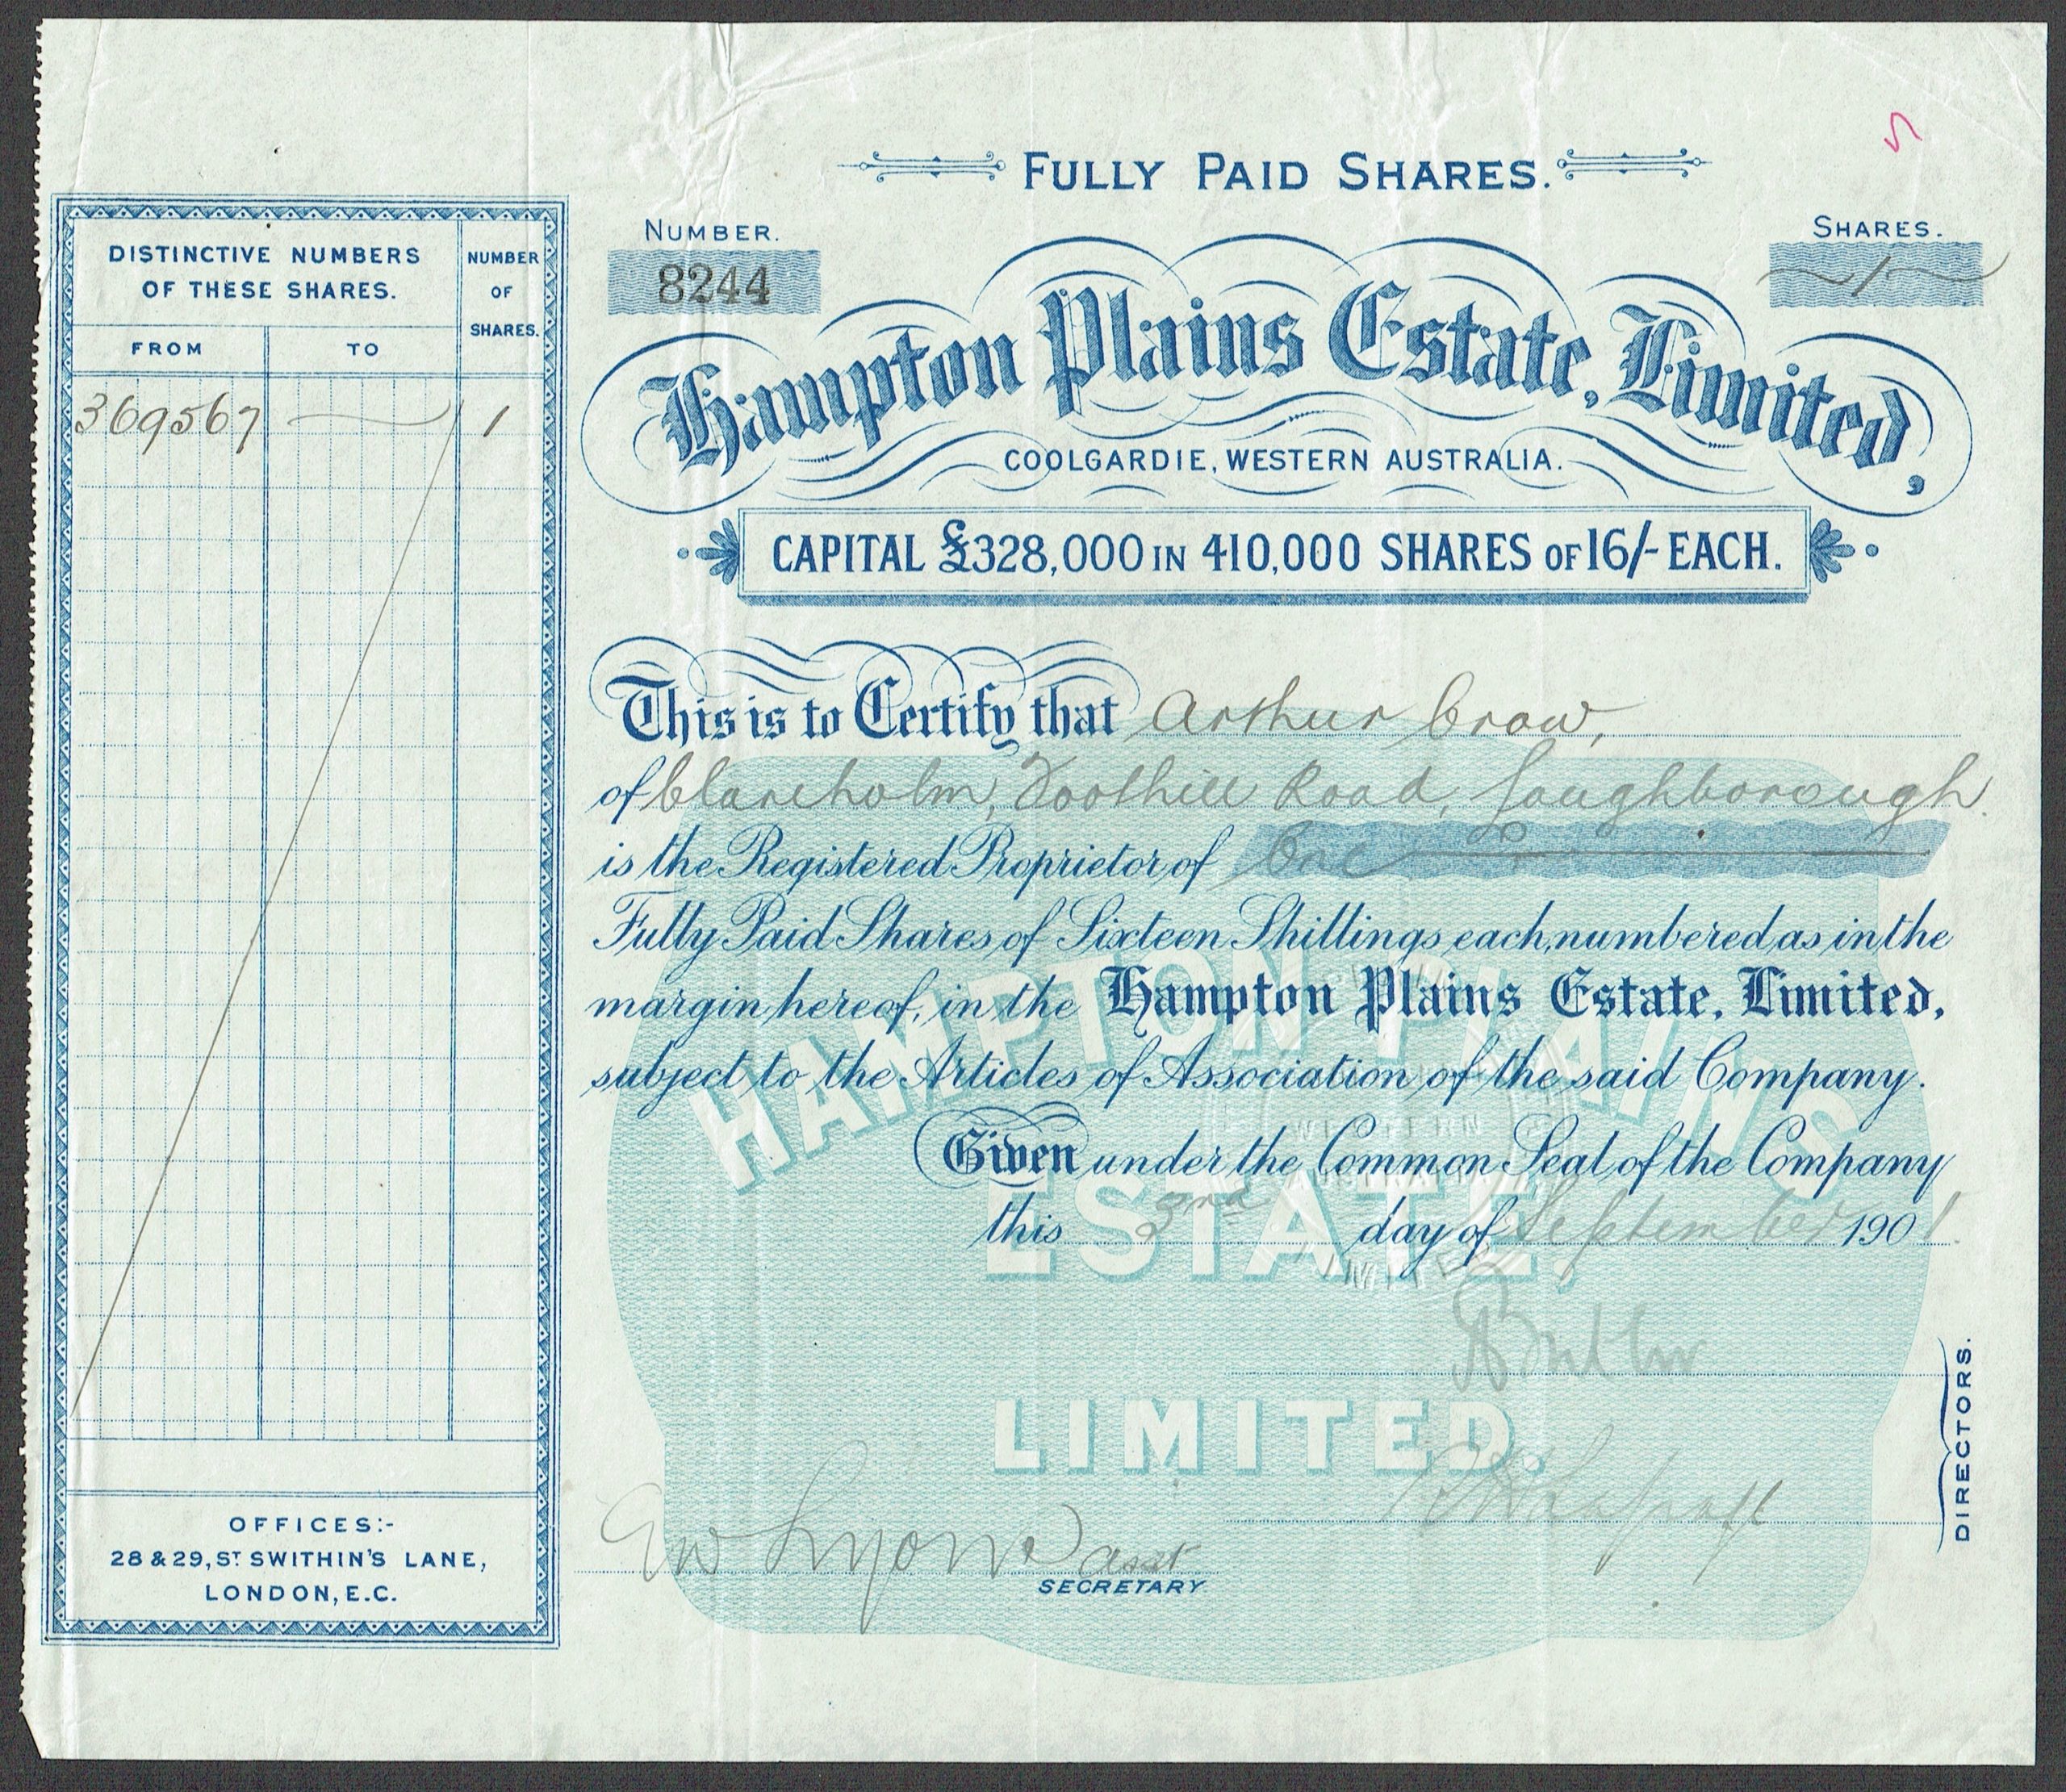 FULLY PAID SHARES.
NUMBER.
8244
SHARES.
1
Hampton Plains Estate, Limited,
COOLGARDIE, WESTERN AUSTRALIA.
CAPITAL £328,000 IN 410,000 SHARES OF 16/- EACH.
DISTINCTIVE NUMBERS OF THESE SHARES.
NUMBER OF SHARES.
FROM TO
369567 1
This is to Certify that Arthur Crow,
of Clareholm, Toothill Road, Loughborough.
is the Registered Proprietor of One
Fully Paid Shares of Sixteen Shillings each, numbered as in the
margin hereof, in the Hampton Plains Estate, Limited,
subject to the Articles of Association of the said Company.
Given under the Common Seal of the Company
this 3rd day of September 1901.
HAMPTON PLAINS
ESTATE,
LIMITED.
WESTERN
AUSTRALIA
Butler
DIRECTORS.
EW Lyons Asst
SECRETARY.
OFFICES:-
28 & 29, ST SWITHIN'S LANE,
LONDON, E.C.